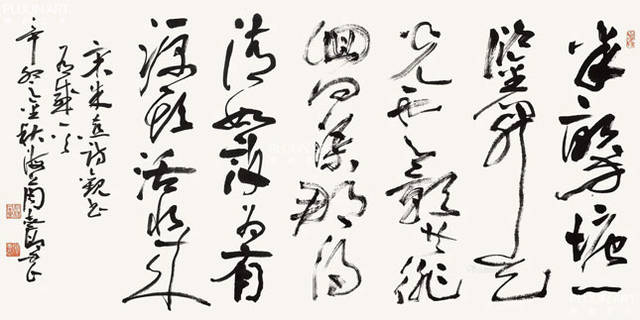 半畝方塘一
鑑開天
光雲影共徘
徊問渠那得
清如許為有
源頭活水來
宋朱熹詩觀書
有感一首
辛卯